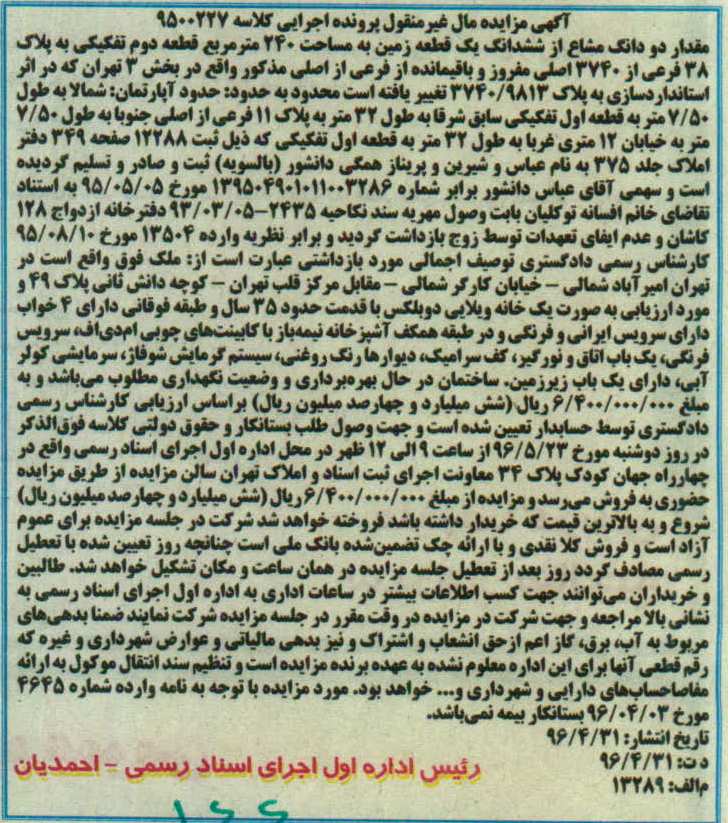 آگهی مزایده مال غیرمنقول پرونده اجرایی کلاسه ۹۵۰۰۲۲۷
مقدار دو دانگ مشاع از ششدانگ یک قطعه زمین به مساحت ۲۴۰ مترمربع قطعه دوم تفکیکی به پلاک
۳۸ فرعی از ۳۷۴۰ اصلی مفروز و باقیمانده از فرعی از اصلی مذکور واقع در بخش ۳ تهران که در اثر
استانداردسازی به پلاک ۳۷۴۰/۹۸۱۳ تغییر یافته است محدود به حدود: حدود آپارتمان: شمالا به طول
۷/۵۰ متر به قطعه اول تفکیکی سابق شرقا به طول ۳۲ متر به پلاک ۱۱ فرعی از اصلی جنوبا به طول ۷/۵۰
متر به خیابان ۱۲ متری غربا به طول ۳۲ متر به قطعه اول تفکیکی که ذیل ثبت ۱۲۲۸۸ صفحه ۳۴۹ دفتر
املاک جلد ۳۷۵ به نام عباس و شیرین و پریناز همگی دانشور (بالسویه) ثبت و صادر و تسلیم گردیده
است و سهمی آقای عباس دانشور برابر شماره ۱۳۹۵۰۴۹۰۱۰۱۱۰۰۳۲۸۶ مورخ ۹۵/۰۵/۰۵ به استناد
تقاضای خانم افسانه توکلیان بابت وصول مهریه سند نکاحیه ۲۴۳۵-۹۳/۰۳/۰۵ دفترخانه ازدواج ۱۲۸
کاشان و عدم ایفای تعهدات توسط زوج بازداشت گردید و برابر نظریه وارده ۱۳۵۰۴ مورخ ۹۵/۰۸/۱۰
کارشناس رسمی دادگستری توصیف اجمالی مورد بازداشتی عبارت است از: ملک فوق واقع است در
تهران امیرآباد شمالی – خیابان کارگر شمالی – مقابل مرکز قلب تهران – کوچه دانش ثانی پلاک ۴۹ و
مورد ارزیابی به صورت یک خانه ویلایی دوبلکس با قدمت حدود ۳۵ سال و طبقه فوقانی دارای ۴ خواب
دارای سرویس ایرانی و فرنگی و در طبقه همکف آشپزخانه نیمه‌باز با کابینت‌های چوبی ام‌دی‌اف، سرویس
فرنگی، یک باب اتاق و نورگیر، کف سرامیک، دیوارها رنگ روغنی، سیستم گرمایش شوفاژ، سرمایشی کولر
آبی، دارای یک باب زیرزمین. ساختمان در حال بهره‌برداری و وضعیت نگهداری مطلوب می‌باشد و به
مبلغ ۶/۴۰۰/۰۰۰/۰۰۰ ریال (شش میلیارد و چهارصد میلیون ریال) براساس ارزیابی کارشناس رسمی
دادگستری توسط حسابدار تعیین شده است و جهت وصول طلب بستانکار و حقوق دولتی کلاسه فوق‌الذکر
در روز دوشنبه مورخ ۹۶/۵/۲۳ از ساعت ۹ الی ۱۲ ظهر در محل اداره اول اجرای اسناد رسمی واقع در
چهارراه جهان کودک پلاک ۳۴ معاونت اجرای ثبت اسناد و املاک تهران سالن مزایده از طریق مزایده
حضوری به فروش می‌رسد و مزایده از مبلغ ۶/۴۰۰/۰۰۰/۰۰۰ ریال (شش میلیارد و چهارصد میلیون ریال)
شروع و به بالاترین قیمت که خریدار داشته باشد فروخته خواهد شد شرکت در جلسه مزایده برای عموم
آزاد است و فروش کلا نقدی و با ارائه چک تضمین‌شده بانک ملی است چنانچه روز تعیین شده با تعطیل
رسمی مصادف گردد روز بعد از تعطیل جلسه مزایده در همان ساعت و مکان تشکیل خواهد شد. طالبین
و خریداران می‌توانند جهت کسب اطلاعات بیشتر در ساعات اداری به اداره اول اجرای اسناد رسمی به
نشانی بالا مراجعه و جهت شرکت در مزایده در وقت مقرر در جلسه مزایده شرکت نمایند ضمنا بدهی‌های
مربوط به آب، برق، گاز اعم ازحق انشعاب و اشتراک و نیز بدهی مالیاتی و عوارض شهرداری و غیره که
رقم قطعی آنها برای این اداره معلوم نشده به عهده برنده مزایده است و تنظیم سند انتقال موکول به ارائه
مفاصاحساب‌های دارایی و شهرداری و... خواهد بود. مورد مزایده با توجه به نامه وارده شماره ۴۶۴۵
مورخ ۹۶/۰۴/۰۳ بستانکار بیمه نمی‌باشد.
تاریخ انتشار: ۹۶/۴/۳۱
د ت: ۹۶/۴/۳۱
م‌الف: ۱۳۲۸۹
رئیس اداره اول اجرای اسناد رسمی – احمدیان